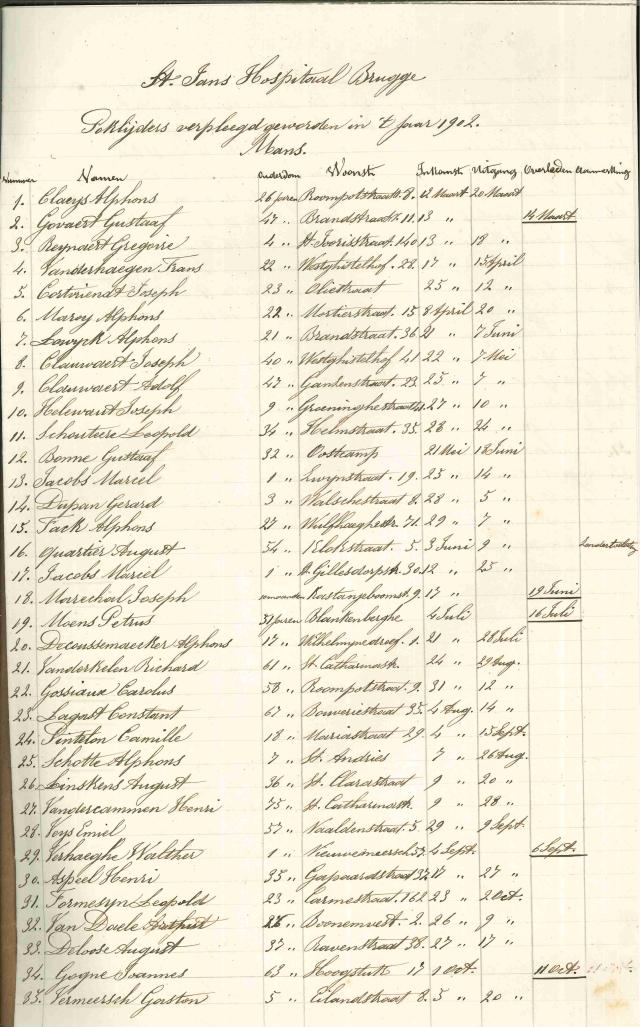 St. Jans Hospitaal Brugge
Poklijders verpleegd geworden in 't jaar 1902.
Mans.
Nummer Namen Ouderdom Woonst Inkomst Uitgang Overleden Aanmerking
1. Claeys Alphons 26 jaren Roompotstraat. 8. 12 Maart 20 Maart
2. Govaert Gustaaf 47 " Brandstraat. 11. 13 " 14 Maart
3. Reynaert Gregoire 4 " St. Joorisstraat. 140 13 " 18 "
4. Vanderhaegen Frans 22 " Westghistelhof. 28. 17 " 15 April
5. Cortvriendt Joseph 23 " Oliestraat 25 " 12 "
6. Maroy Alphons 22 " Mortierstraat. 15 8 April 20 "
7. Lowyck Alphons 21 " Brandstraat. 36 21 " 7 Juni
8. Clauwaert Joseph 40 " Westghistelhof 41 22 " 7 Mei
9. Clauwaert Adolf 47 " Ganzenstraat. 23. 25 " 7 "
10. Helewaut Joseph 9 " Groeninghestraat 27 " 10 "
11. Schoutteere Leopold 34 " Helmstraat. 35. 28 " 24 "
12. Bonne Gustaaf 32 " Oostcamp 21 Mei 18 Juni
13. Jacobs Marcel 1 " Zwynstraat. 19. 25 " 14 "
14. Dupan Gerard 3 " Walschestraat 8. 28 " 5 "
15. Fack Alphons 27 " Wulfhaegestr. 71. 29 " 7 "
16. Quartier August 54 " Klokstraat. 5. 3 Juni 9 "
17. Jacobs Marcel 1 " St. Gillesdorpstr. 30. 12 " 25 "
18. Marechal Joseph Kastanjeboomstr. 9. 17 " 19 Juni
19. Moens Petrus 37 jaren Blankenberghe 4 Juli 16 Juli
20. Decoussemaecker Alphons 17 " Wilhelmynedreef. 1. 21 " 28 Juli
21. Vanderkelen Richard 61 " St. Catharinastr. 24 " 29 Aug.
22. Gossiaux Carolus 58 " Roompotstraat. 9. 31 " 12 "
23. Lagast Constant 67 " Bouveriestraat 35. 4 Aug. 14 "
24. Pintelon Camille 18 " Mariastraat 29. 4 " 15 Sept.
25. Schotte Alphons 7 " St. Andries 7 " 26 Aug.
26. Linskens August 36 " St. Clarastraat 9 " 20 "
27. Vandercammen Henri 75 " St. Catharinastr. 9 " 28 "
28. Veys Emiel 57 " Naaldenstraat. 5. 29 " 9 Sept.
29. Verhaeghe Walther 1 " Nieuwemeersch 57. 4 Sept. 6 Sept.
30. Aspeel Henri 35 " Gapaardstraat 17 " 27 "
31. Formesyn Leopold 23 " Carmestraat. 162 23 " 2 Oct.
32. Van Daele Arthur 26 " Boonemvest. 2. 26 " 9 "
33. Deloose August 37 " Ravenstraat 38. 27 " 17 "
34. Gogne Joannes 63 " Hoogstuk 17 1 Oct. 11 Oct.
35. Vermeersch Gaston 5 " Eilandstraat 8. 5 " 20 "